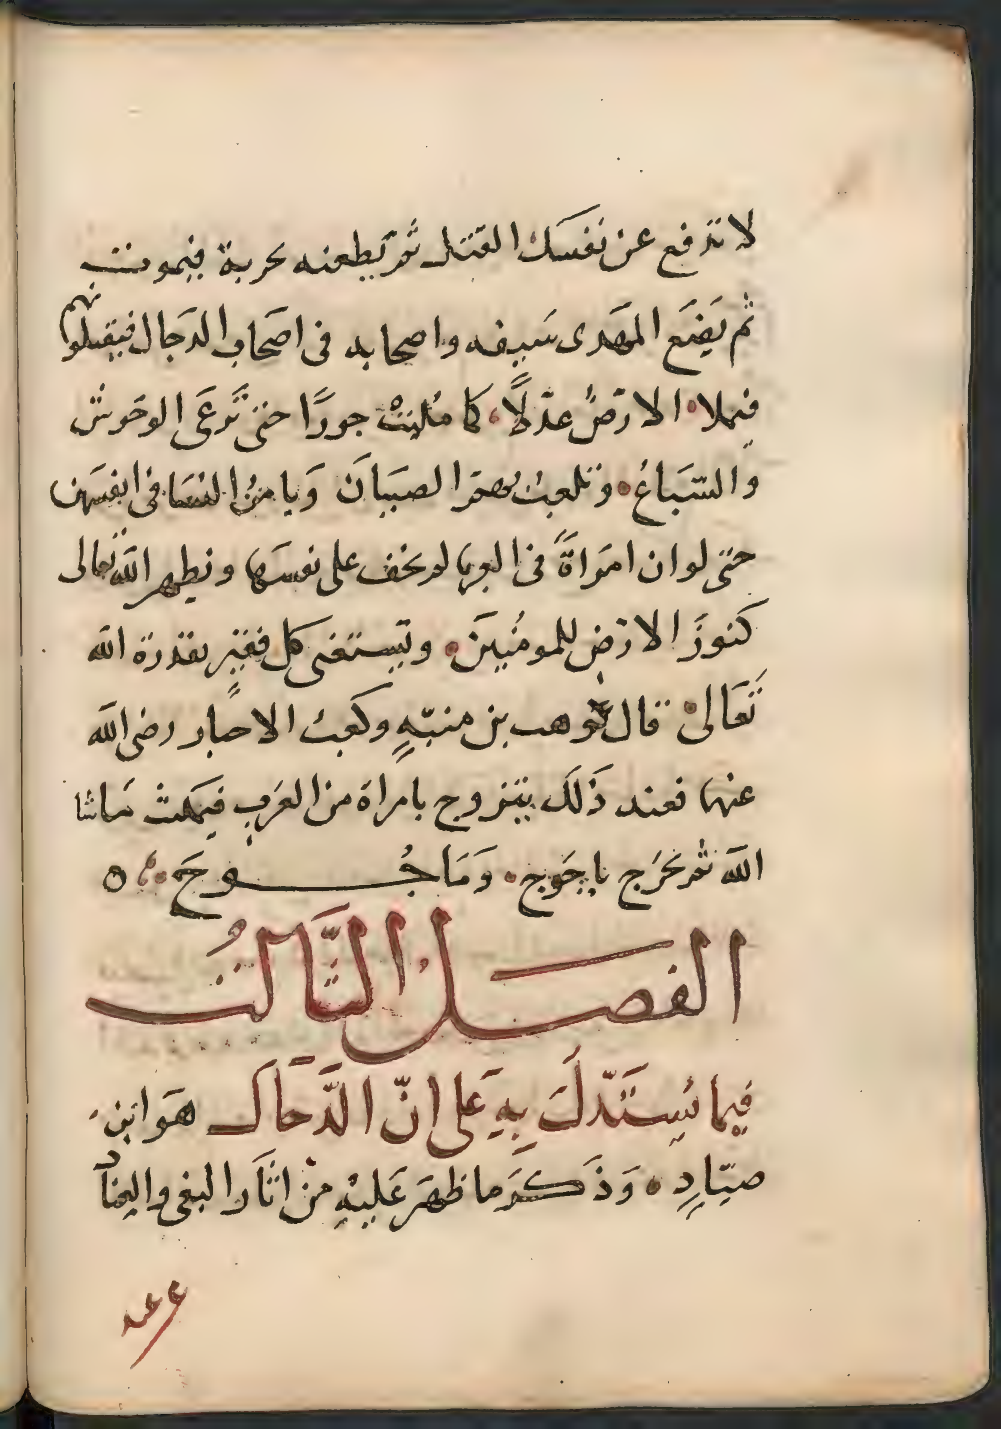 لا تدفع عن نفسك القتل ثم يطعنه بحربة فيموت
ثم يَضَع المهَدى سَيفه واصحابه فى اصحَاب الدجال فيقتلونهم
فيملا الارضُ عدلًا كما مُلئتْ جورًا حتى تَرعَى الوحَوش
وَالسّبَاعُ وتلعبُ بهم الصبيَان وَيامنُ النسَا فى انفسَهن
حتى لو ان امَراةً فى العر لم تخف على نفسَها ويظهر اللّٰه تعالى
كنوزَ الارَض للمومُنيَن ويَستغنى كل فقيرٍ بقدرة اللّٰه
تَعَالى قال وهب بن منبّهٍ وكعبُ الاحبار رضى اللّٰه
عنهما فعند ذَلَك يتزوج بامراة من العرَب فيمكث مَا شا
اللّٰه ثم يخرَج ياجَوج وَمَاجُوجَ ه
الفصَلُ الثَّالثُ
فيما يُستَدّلَ بِهِ عَلى انّ الدَّجاَل هَو ابن
صيّادٍ وَذَكَرَ ما ظهَر عَليْهِ من اثَار البغى والعناد